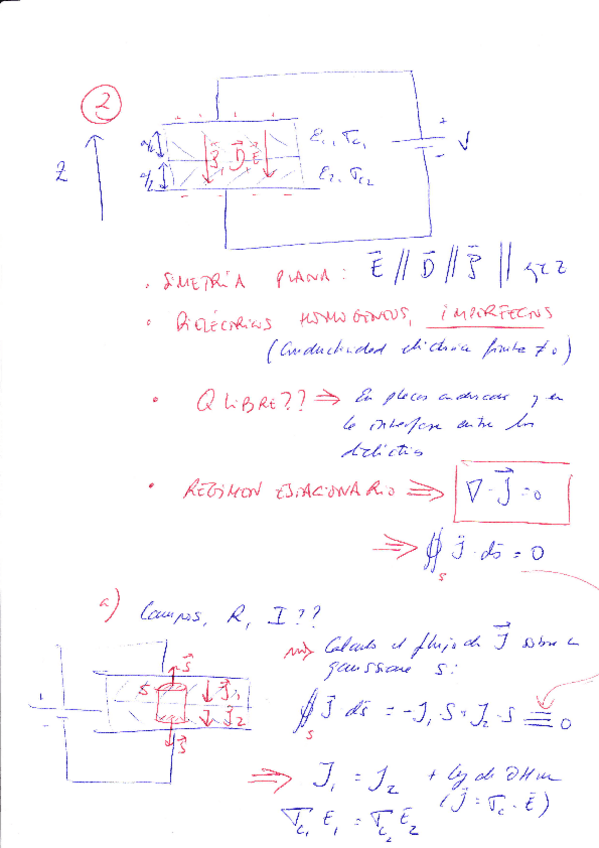 2
+ + + + +
Z
a/2
a/2
J⃗, D⃗, E⃗
ε₁, σc₁
ε₂, σc₂
+
-
V
- - - -
· SIMETRÍA PLANA: E⃗ // D⃗ // J⃗ // eje z
· DIELÉCTRICOS HOMOGÉNEOS, IMPERFECTOS
(Conductividad eléctrica finita ≠ 0)
· Q LIBRE?? ⇒ En placas conductoras y en
la interfase entre los
dieléctricos
· RÉGIMEN ESTACIONARIO ⇒ ∇·J⃗ = 0
⇒ ∯s J⃗·ds̄ = 0
a) Campos, R, I??
⇒ Calculo el flujo de J⃗ sobre la
gaussiana S:
S⃗
S
J⃗₁
J⃗₂
S⃗
∯s J⃗·ds̄ = -J₁·S + J₂·S ≡ 0
⇒ J₁ = J₂ + ley de OHM
(J̄ = σc·Ē)
σc₁ E₁ = σc₂ E₂